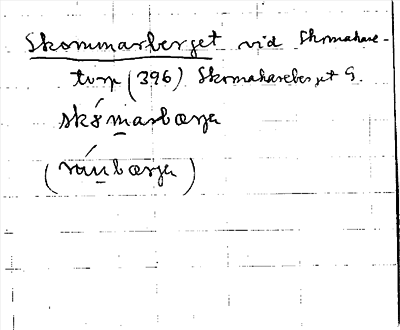 Skommarberget vid Skomakare-
torp (396) Skomakareberget G.
skómarbærja
(ránbærja)